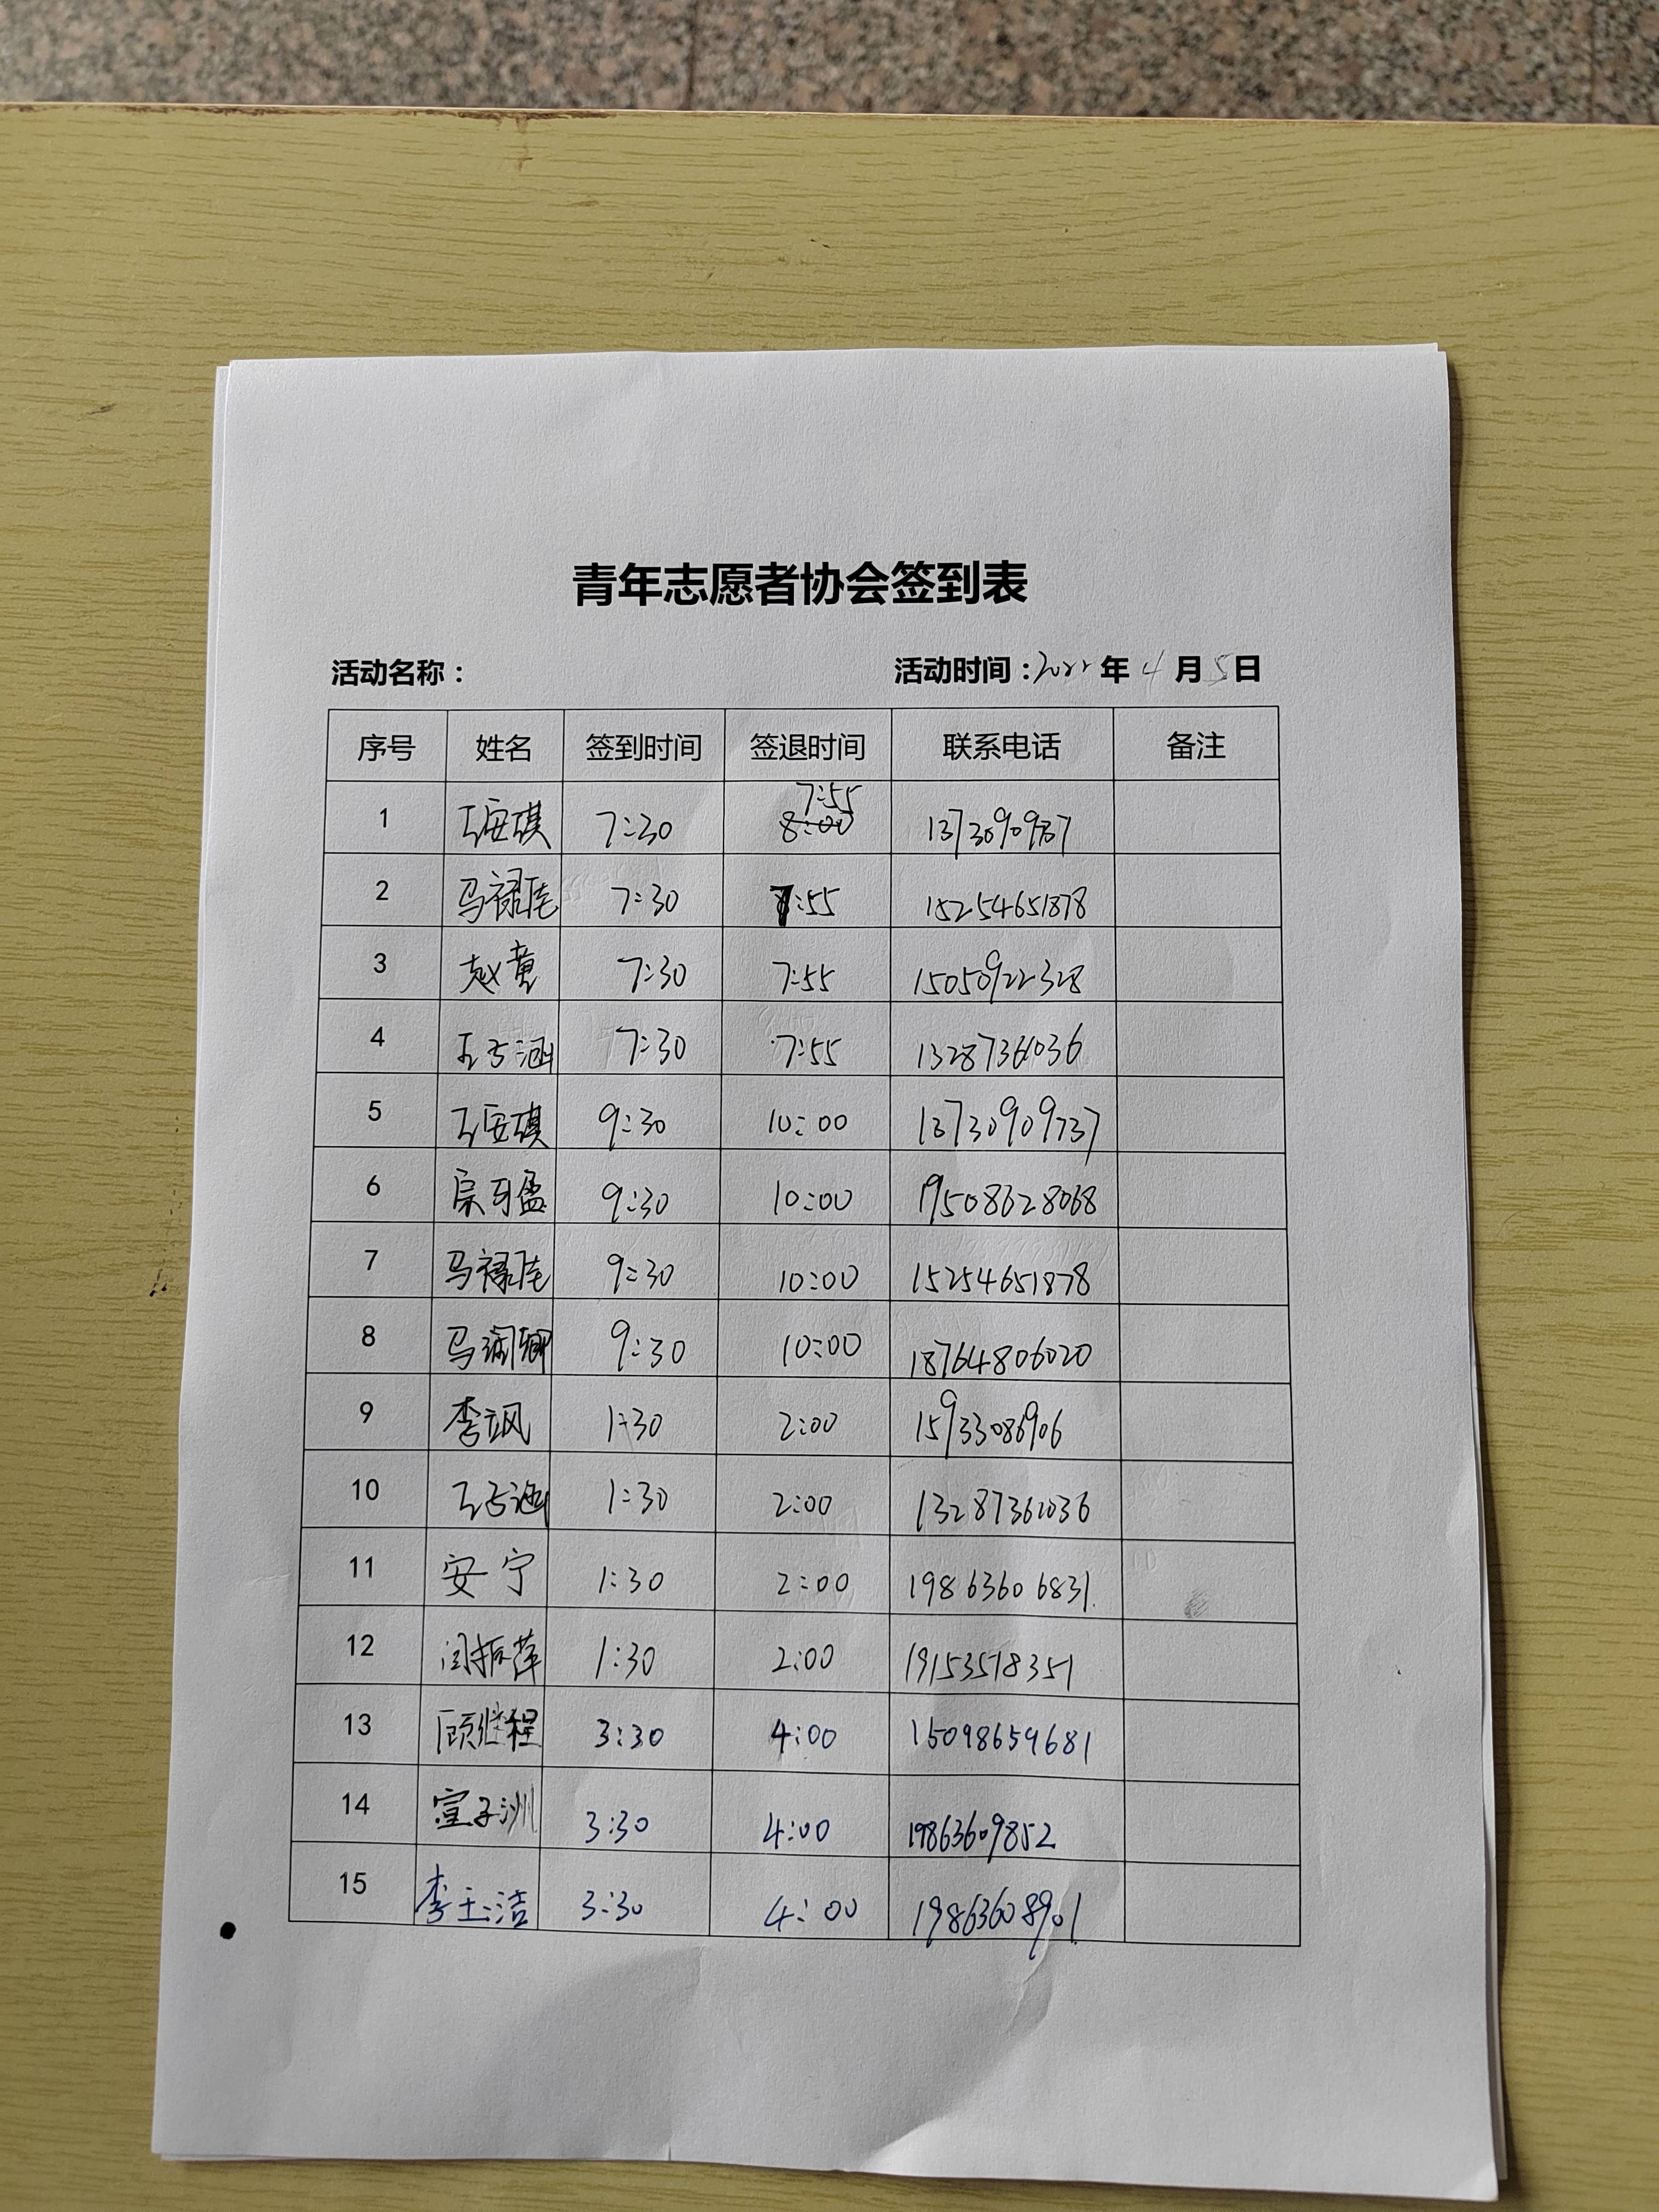 青年志愿者协会签到表
活动名称： 活动时间：2022年4月5日
序号 姓名 签到时间 签退时间 联系电话 备注
7:55
1 王安琪 7:30 8:00
2 马禄佳 7:30 7:55 15254651878
3 赵黄 7:30 7:55 15050922328
4 7:30 7:55 13287361036
5 王安琪 9:30 10:00 13730909737
6 9:30 10:00 19508628068
7 马禄佳 9:30 10:00 15254651878
8 9:30 10:00 18764806020
9 李飒 1:30 2:00
10 1:30 2:00 13287361036
11 安宁 1:30 2:00 19863606831
12 闫振萍 1:30 2:00 19153518351
13 顾继程 3:30 4:00 15098659681
14 宣子洲 3:30 4:00 19863609852
15 李玉洁 3:30 4:00 19863608901